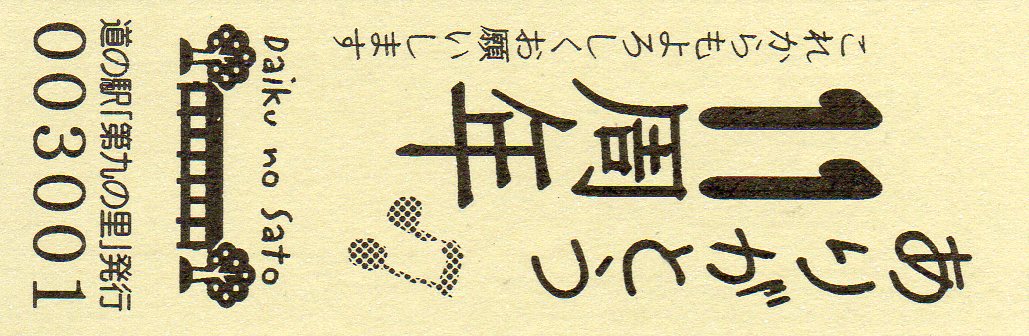 ありがとう
11周年
これからもよろしくお願いします
Daiku no Sato
道の駅「第九の里」発行
003001